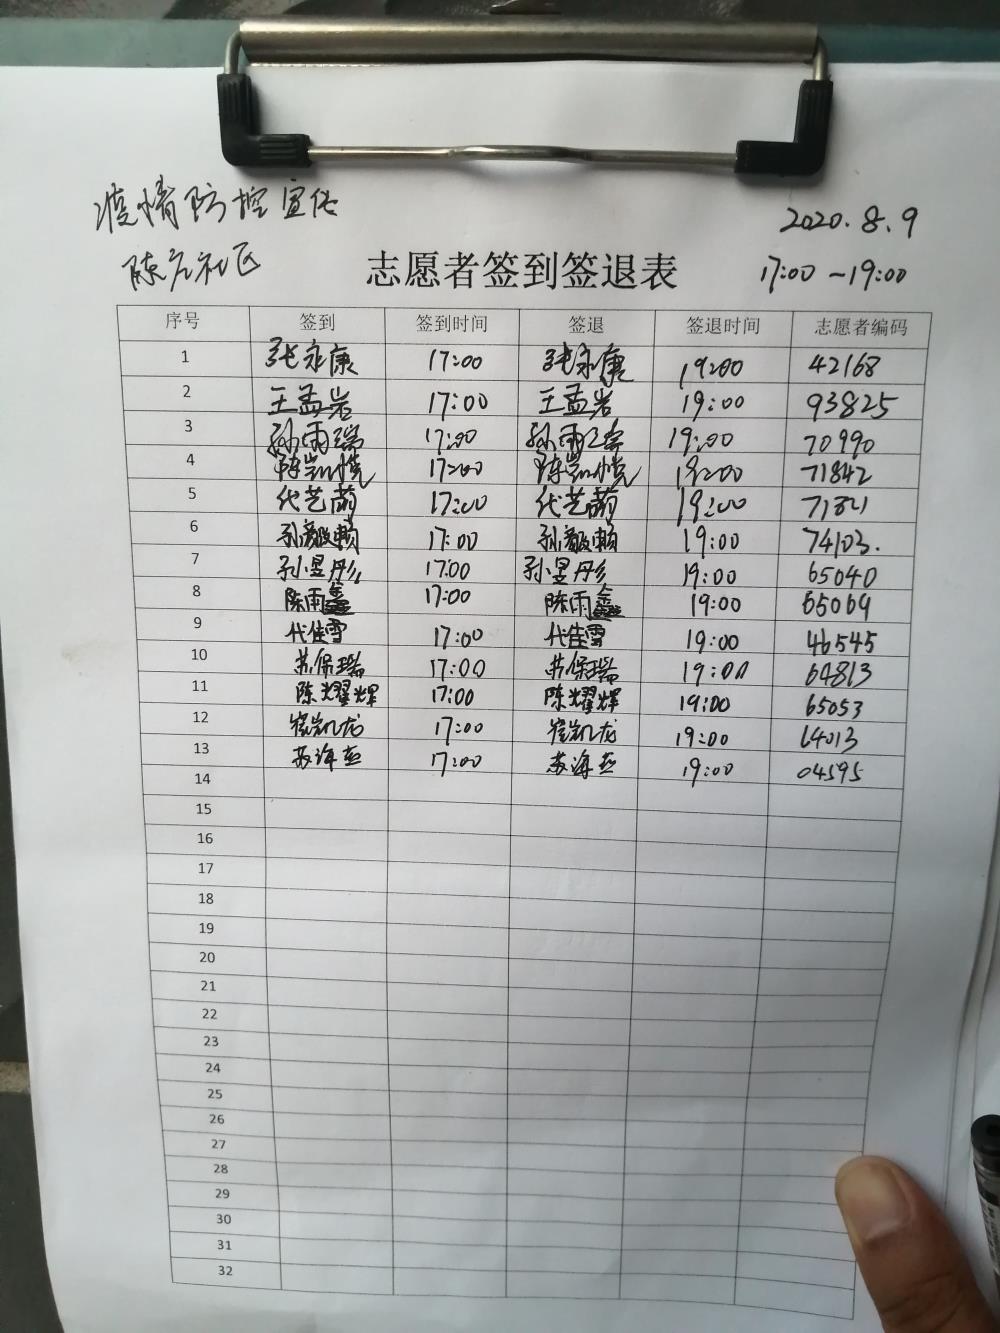 疫情防控宣传
2020.8.9
陈庄社区
志愿者签到签退表
17:00 ~19:00
序号 签到 签到时间 签退 签退时间 志愿者编码
1 张永康 17:00 张永康 19:00 42168
2 王孟岩 17:00 王孟岩 19:00 93825
3 孙雨瑞 17:00 孙雨瑞 19:00 70990
4 陈凯悦 17:00 陈凯悦 19:00 71842
5 代艺萌 17:00 代艺萌 19:00 71821
6 孙毅赖 17:00 孙毅赖 19:00 74103.
7 孙昱彤 17:00 孙昱彤 19:00 65040
8 陈雨鑫 17:00 陈雨鑫 19:00 65069
9 代佳雪 17:00 代佳雪 19:00 46545
10 苏保瑞 17:00 苏保瑞 19:00 64813
11 陈耀辉 17:00 陈耀辉 19:00 65053
12 崔凯龙 17:00 崔凯龙 19:00 64013
13 苏海燕 17:00 苏海燕 19:00 04595
14
15
16
17
18
19
20
21
22
23
24
25
26
27
28
29
30
31
32